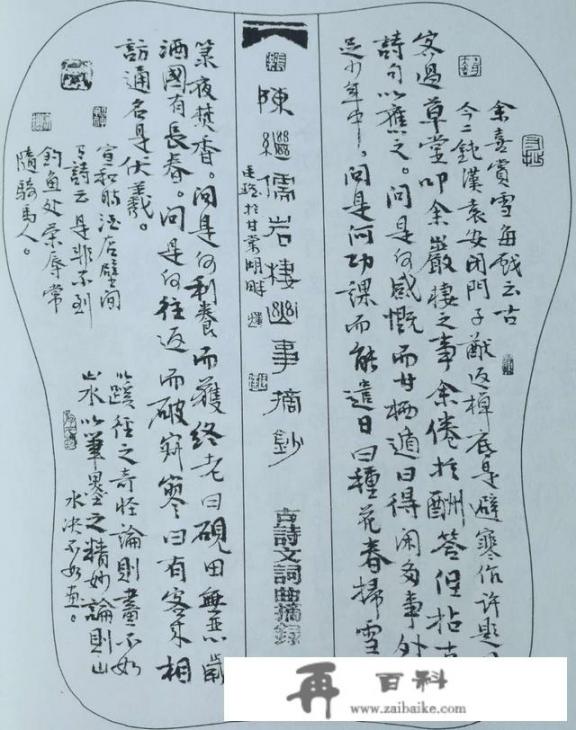 余喜賞雪每戲云古
今二鈍漢袁安閉門子猷返棹底是避寒作許題
客過草堂叩余巖棲之事余倦於酬答但拈古
詩句以應之。問是何感慨而甘栖遁曰得閑多事外
足少年中。問是何功課而能遣日曰種花春掃雪
陳繼儒岩棲幽事摘鈔
於甘棠湖畔
古詩文詞曲摘錄
籙夜焚香。問是何利養而獲終老曰硯田無惡歲
酒國有長春。問是何往返而破寂寥曰有客來相
訪通名是伏羲。
宣和時酒店壁間
有詩云是非不到
釣魚處榮辱常
隨騎馬人。
以蹊徑之奇怪論則畫不如
山水以筆墨之精妙論則山
水決不如畫。
再百科
www.zaibaike.com